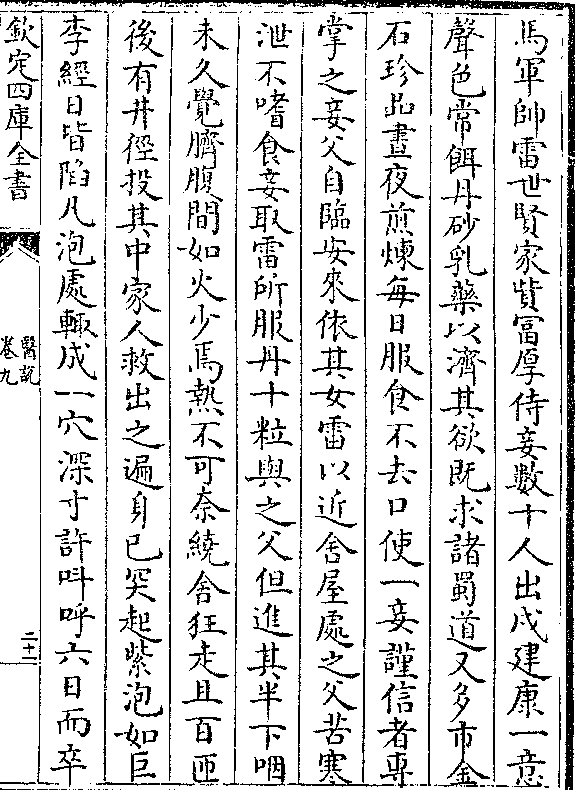 馬軍帥雷世賢家貲冨厚侍妾數十人出戍建康一意
聲色常餌丹砂乳藥以濟其欲既求諸蜀道又多市金
石珍品晝夜煎煉每日服食不去口使一妾謹信者專
掌之妾父自臨安來依其女雷以近舍屋處之父苦寒
泄不嗜食妾取雷所服丹十粒與之父但進其半下咽
未久覺臍腹間如火少焉熱不可奈繞舍狂走且百匝
後有井徑投其中家人救出之遍身已突起紫泡如巨
李經日皆陷凡泡處輙成一穴深寸許呌呼六日而卒
欽定四庫全書
醫説
卷九
二十一